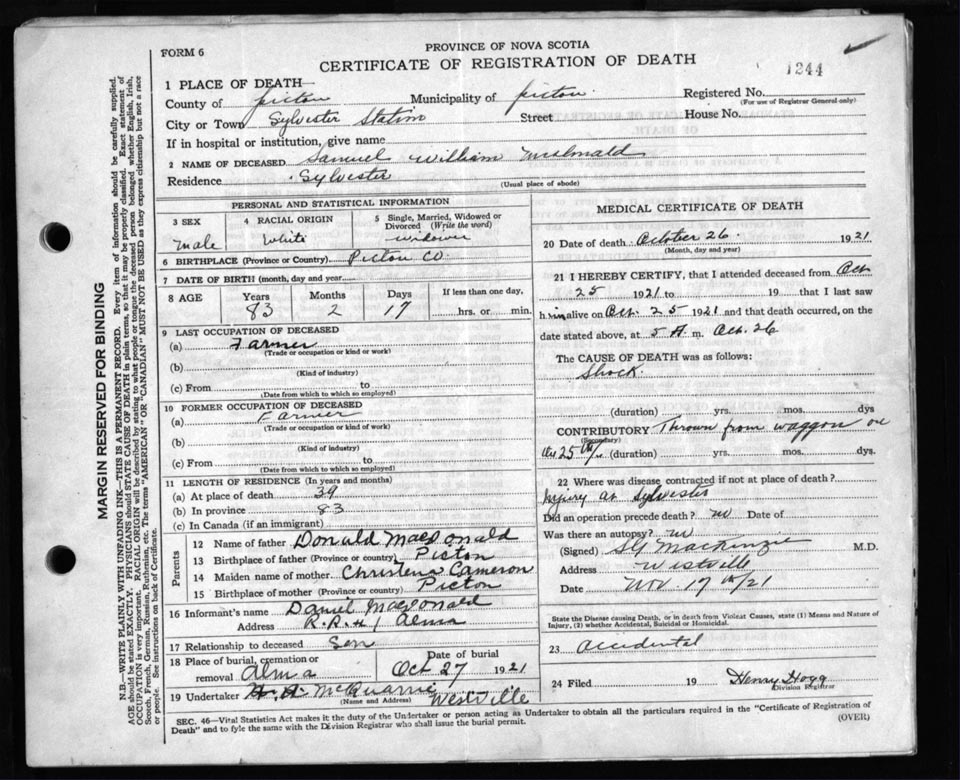 FORM 6
PROVINCE OF NOVA SCOTIA
CERTIFICATE OF REGISTRATION OF DEATH
1244
1 PLACE OF DEATH—
County of Pictou Municipality of Pictou Registered No.
(For use of Registrar General only)
City or Town Sylvester Station Street House No.
If in hospital or institution, give name
2 NAME OF DECEASED Samuel William McDonald
Residence Sylvester
(Usual place of abode)
PERSONAL AND STATISTICAL INFORMATION
3 SEX 4 RACIAL ORIGIN 5 Single, Married, Widowed or Divorced (Write the word)
Male White Widower
6 BIRTHPLACE (Province or Country) Pictou Co.
7 DATE OF BIRTH (month, day and year)
8 AGE Years Months Days If less than one day,
83 2 17 hrs. or min.
9 LAST OCCUPATION OF DECEASED
(a) Farmer
(Trade or occupation or kind or work)
(b)
(Kind of industry)
(c) From to
(Date from which to which so employed)
10 FORMER OCCUPATION OF DECEASED
(a) Farmer
(Trade or occupation or kind of work)
(b)
(Kind of industry)
(c) From to
(Date from which to which so employed)
11 LENGTH OF RESIDENCE (In years and months)
(a) At place of death 39
(b) In province 83
(c) In Canada (if an immigrant)
Parents
12 Name of father Donald MacDonald
13 Birthplace of father (Province or country) Picton
14 Maiden name of mother Christena Cameron
15 Birthplace of mother (Province or country) Picton
16 Informant's name Daniel MacDonald
Address R.R.#1 Alma
17 Relationship to deceased Son
18 Place of burial, cremation or removal Alma Date of burial Oct 27 1921
19 Undertaker McQuarrie Westville
(Name and Address)
MEDICAL CERTIFICATE OF DEATH
20 Date of death October 26 1921
(Month, day and year)
21 I HEREBY CERTIFY, that I attended deceased from Oct
25 1921 to 19 that I last saw
him alive on Oct. 25 1921 and that death occurred, on
date stated above, at 5 A m. Oct. 26
The CAUSE OF DEATH was as follows:
Shock
(duration) yrs. mos. dys
CONTRIBUTORY Thrown from waggon on
(Secondary)
Oct 25th (duration) yrs. mos. dys.
22 Where was disease contracted if not at place of death?
Injury at Sylvester
Did an operation precede death? no Date of
Was there an autopsy? no
(Signed) MacKenzie M.D.
Address Westville
Date Nov 17th/21
State the Disease causing Death, or in death from Violent Causes, state (1) Means and Nature of
Injury, (2) whether Accidental, Suicidal or Homicidal.
23 accidental
24 Filed 19 Henry Hogg
Division Registrar
SEC. 46—Vital Statistics Act makes it the duty of the Undertaker or person acting as Undertaker to obtain all the particulars required in the "Certificate of Registration of
Death" and to fyle the same with the Division Registrar who shall issue the burial permit.
(OVER)
MARGIN RESERVED FOR BINDING
N.B.—WRITE PLAINLY WITH UNFADING INK—THIS IS A PERMANENT RECORD. Every item of information should be carefully supplied.
AGE should be stated EXACTLY. PHYSICIANS should STATE CAUSE OF DEATH in plain terms, so that it may be properly classified. Exact statement of
OCCUPATION is very important. RACIAL ORIGIN will be described by stating to what people or tongue the deceased person belonged whether English, Irish,
Scotch, French, German, Russian, Ruthenian, etc. The terms "AMERICAN" OR "CANADIAN" MUST NOT BE USED as they express citizenship but not a race
or people. See instructions on back of Certificate.